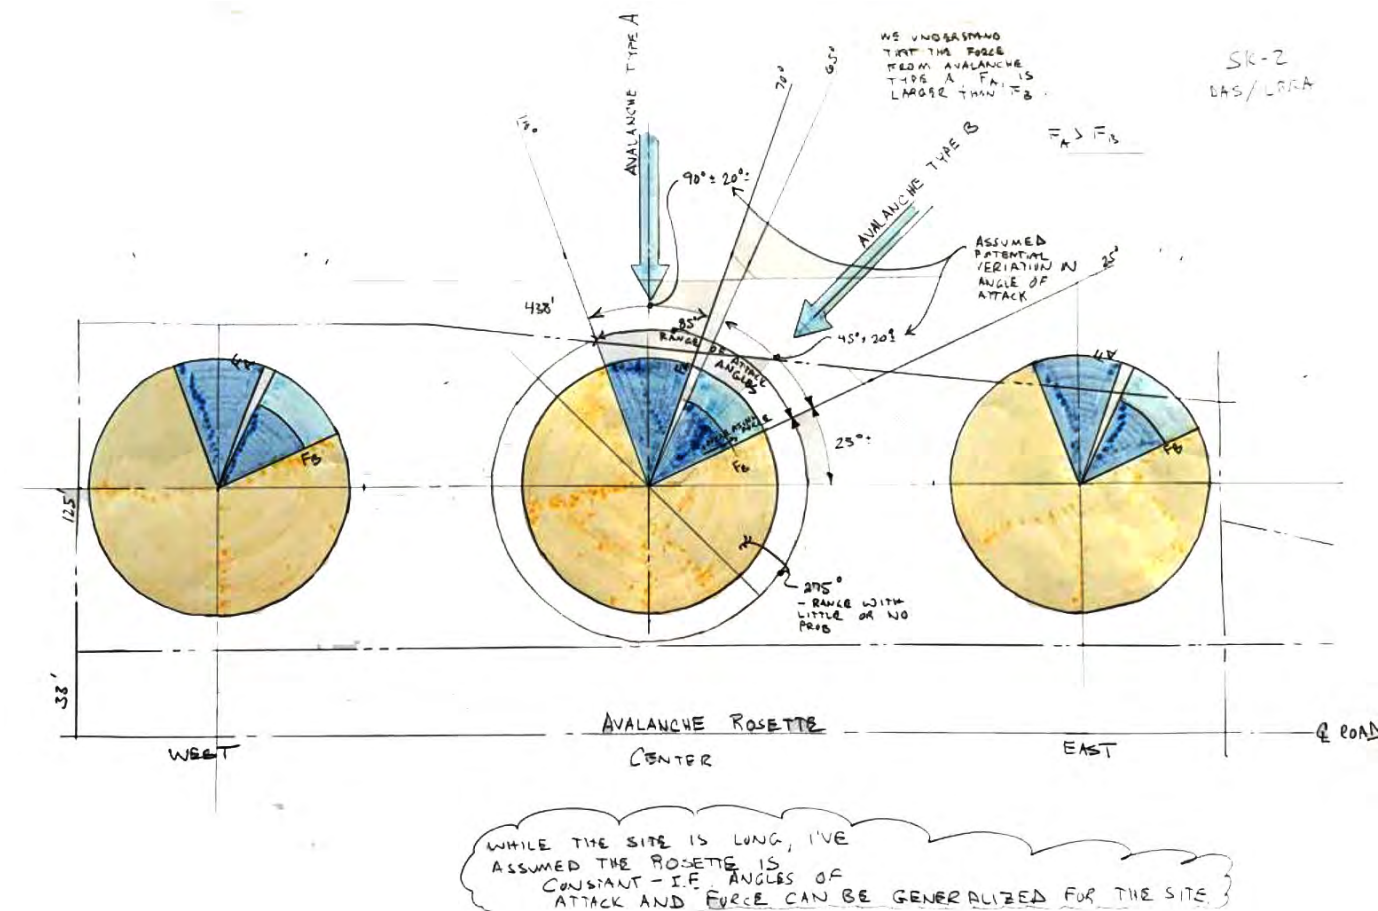 AVALANCHE TYPE A
70°
65°
WE UNDERSTAND
THAT THE FORCE
FROM AVALANCHE
TYPE A FA, IS
LARGER THAN FB.
SK-2
FA > FB
AVALANCHE TYPE B
90° ± 20°±
ASSUMED
POTENTIAL
VERIATION IN
ANGLE OF
ATTACK
25°
438'
85°
RANGE OF ATTACK
ANGLES
45°, 20±
FA
FB
FA
INCREASING
ANGLE
FB
25°±
FA
FB
125'
275°
- RANGE WITH
LITTLE OR NO
PROB
33'
AVALANCHE ROSETTE
WEST
CENTER
EAST
℄ ROAD
WHILE THE SITE IS LONG, I'VE
ASSUMED THE ROSETTE IS
CONSTANT - I.E. ANGLES OF
ATTACK AND FORCE CAN BE GENERALIZED FOR THE SITE